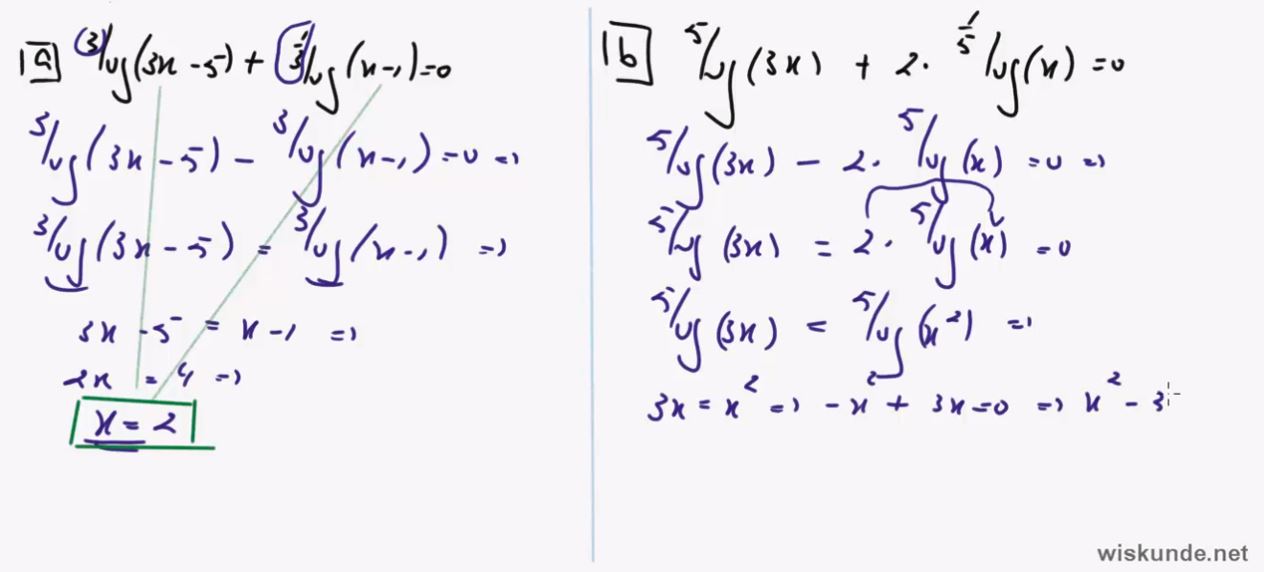 1a ³log(3x-5) + ⅓log(x-1)=0
³log(3x-5) - ³log(x-1)=0 =>
³log(3x-5) = ³log(x-1) =>
3x-5 = x-1 =>
2x = 4 =>
x = 2
1b ⁵log(3x) + 2· ⅕log(x) = 0
⁵log(3x) - 2· ⁵log(x) = 0 =>
⁵log(3x) = 2· ⁵log(x) = 0
⁵log(3x) = ⁵log(x²) =>
3x = x² => -x² + 3x=0 => x² - 3
wiskunde.net